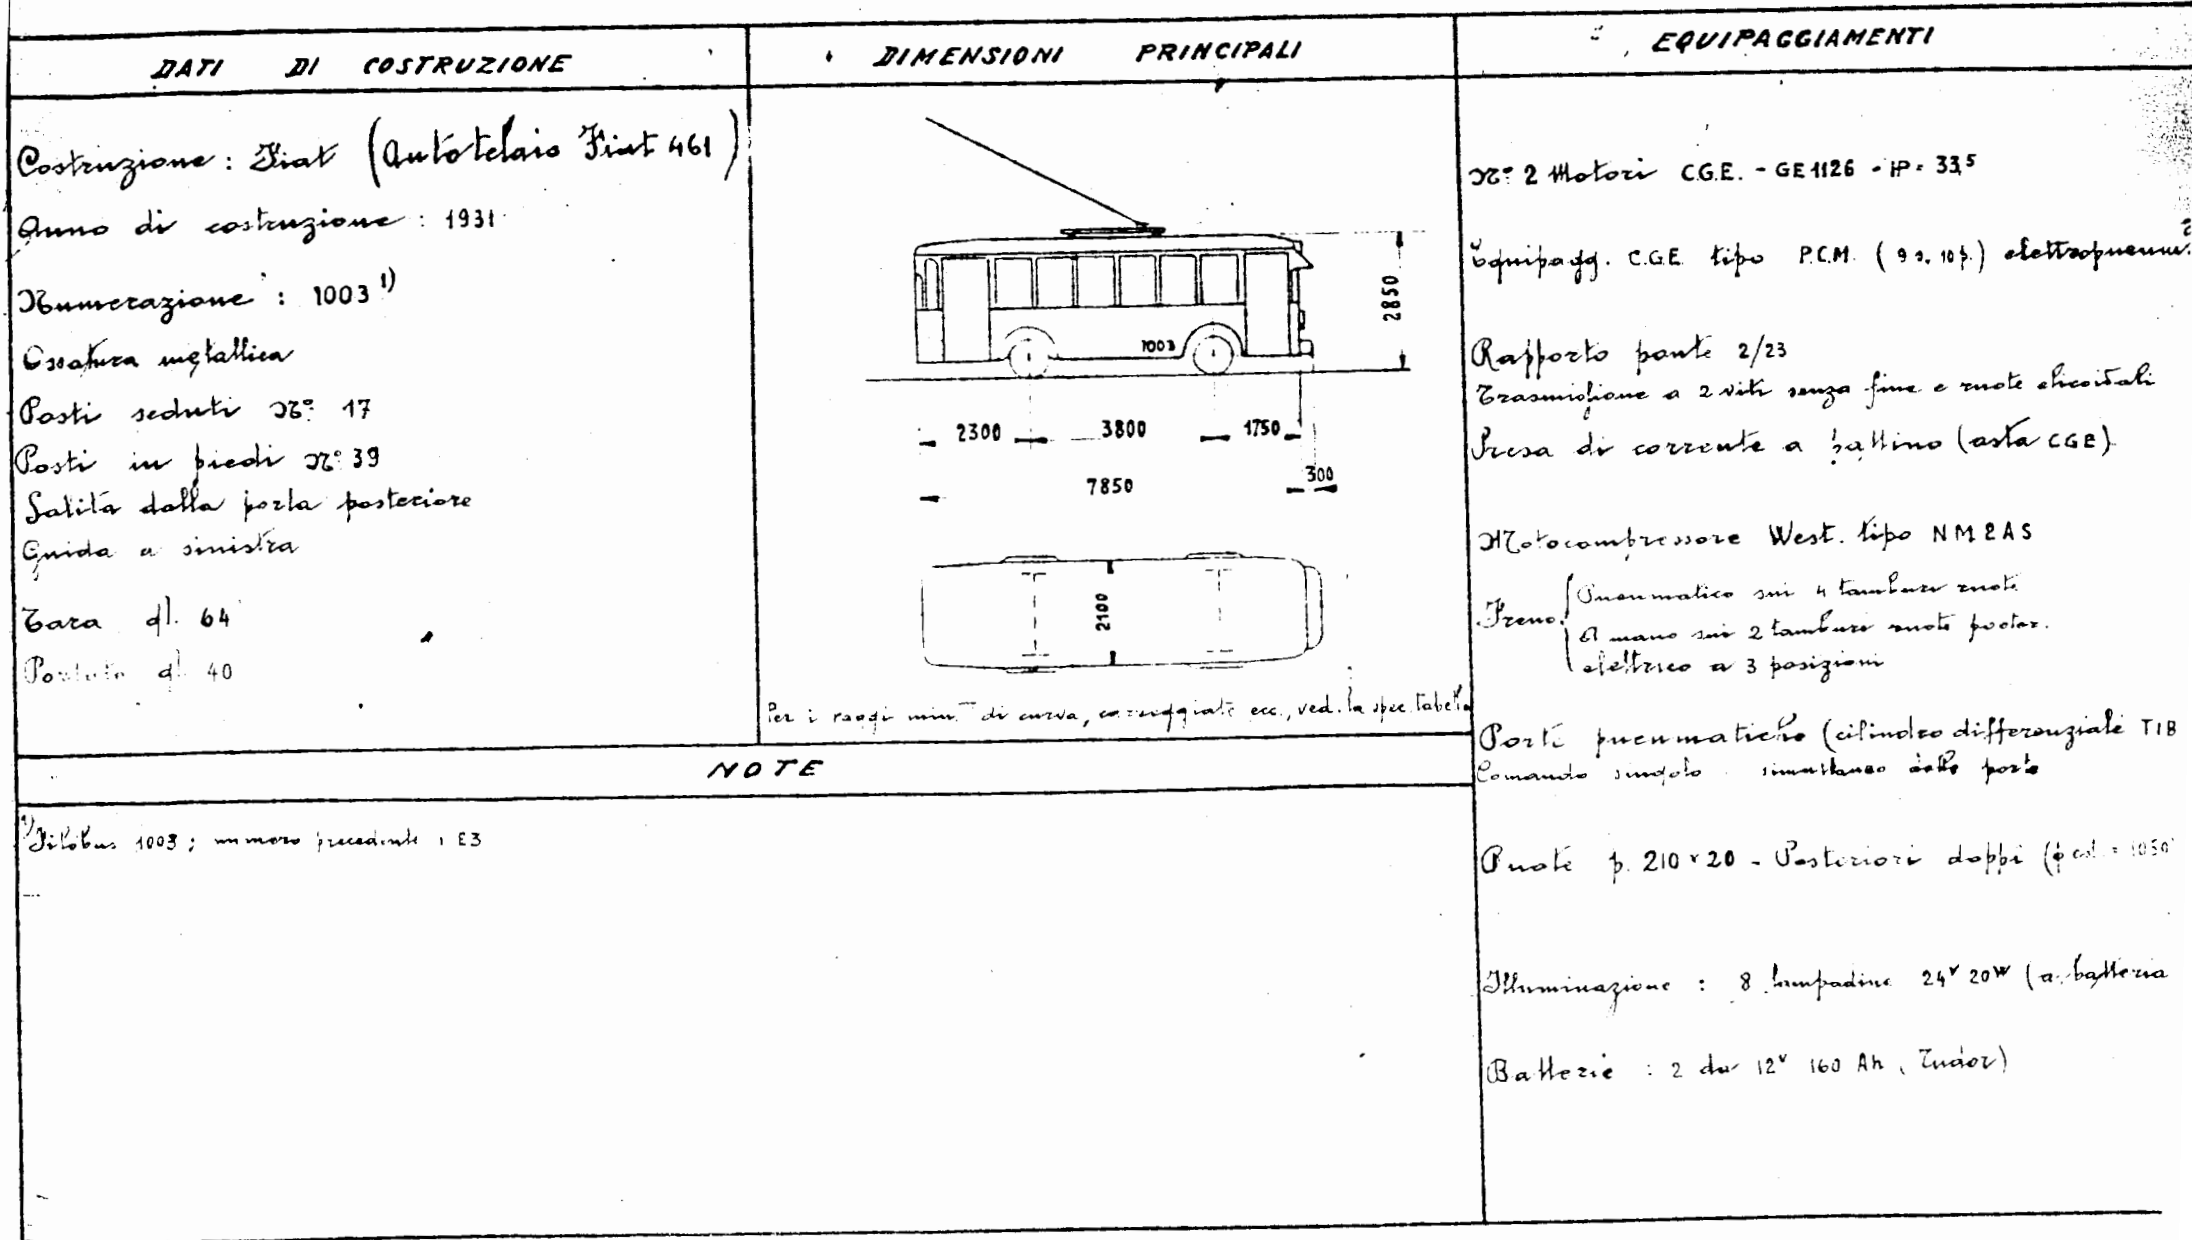 DATI DI COSTRUZIONE
Costruzione : Fiat (Autotelaio Fiat 461)
Anno di costruzione : 1931
Numerazione : 1003 1)
Ossatura metallica
Posti seduti N° 17
Posti in piedi N° 39
Salita dalla porta posteriore
Guida a sinistra
Tara ql. 64
Portata ql. 40
DIMENSIONI PRINCIPALI
2850
1003
2300 3800 1750
7850 300
2100
Per i raggi min. di curva, carreggiate ecc., ved. la spec. tabella
EQUIPAGGIAMENTI
N° 2 Motori C.G.E. - GE 1126 - HP = 33,5
Equipagg. C.G.E. tipo P.C.M. (9 s. 10 p.) elettropneum.
Rapporto ponte 2/23
Trasmissione a 2 viti senza fine e ruote elicoidali
Presa di corrente a pattino (asta CGE)
Motocompressore West. tipo NM2AS
Freno: Pneumatico sui 4 tamburi ruote
A mano sui 2 tamburi ruote poster.
elettrico a 3 posizioni
Porte pneumatiche (cilindro differenziale TIB
Comando singolo simultaneo delle porte
Ruote p. 210 x 20 - Posteriori doppi (φ est. = 1050
Illuminazione : 8 lampadine 24V 20W (a batteria
Batterie : 2 da 12V 160 Ah, Tudor)
NOTE
1) Filobus 1003 ; numero precedente : E3